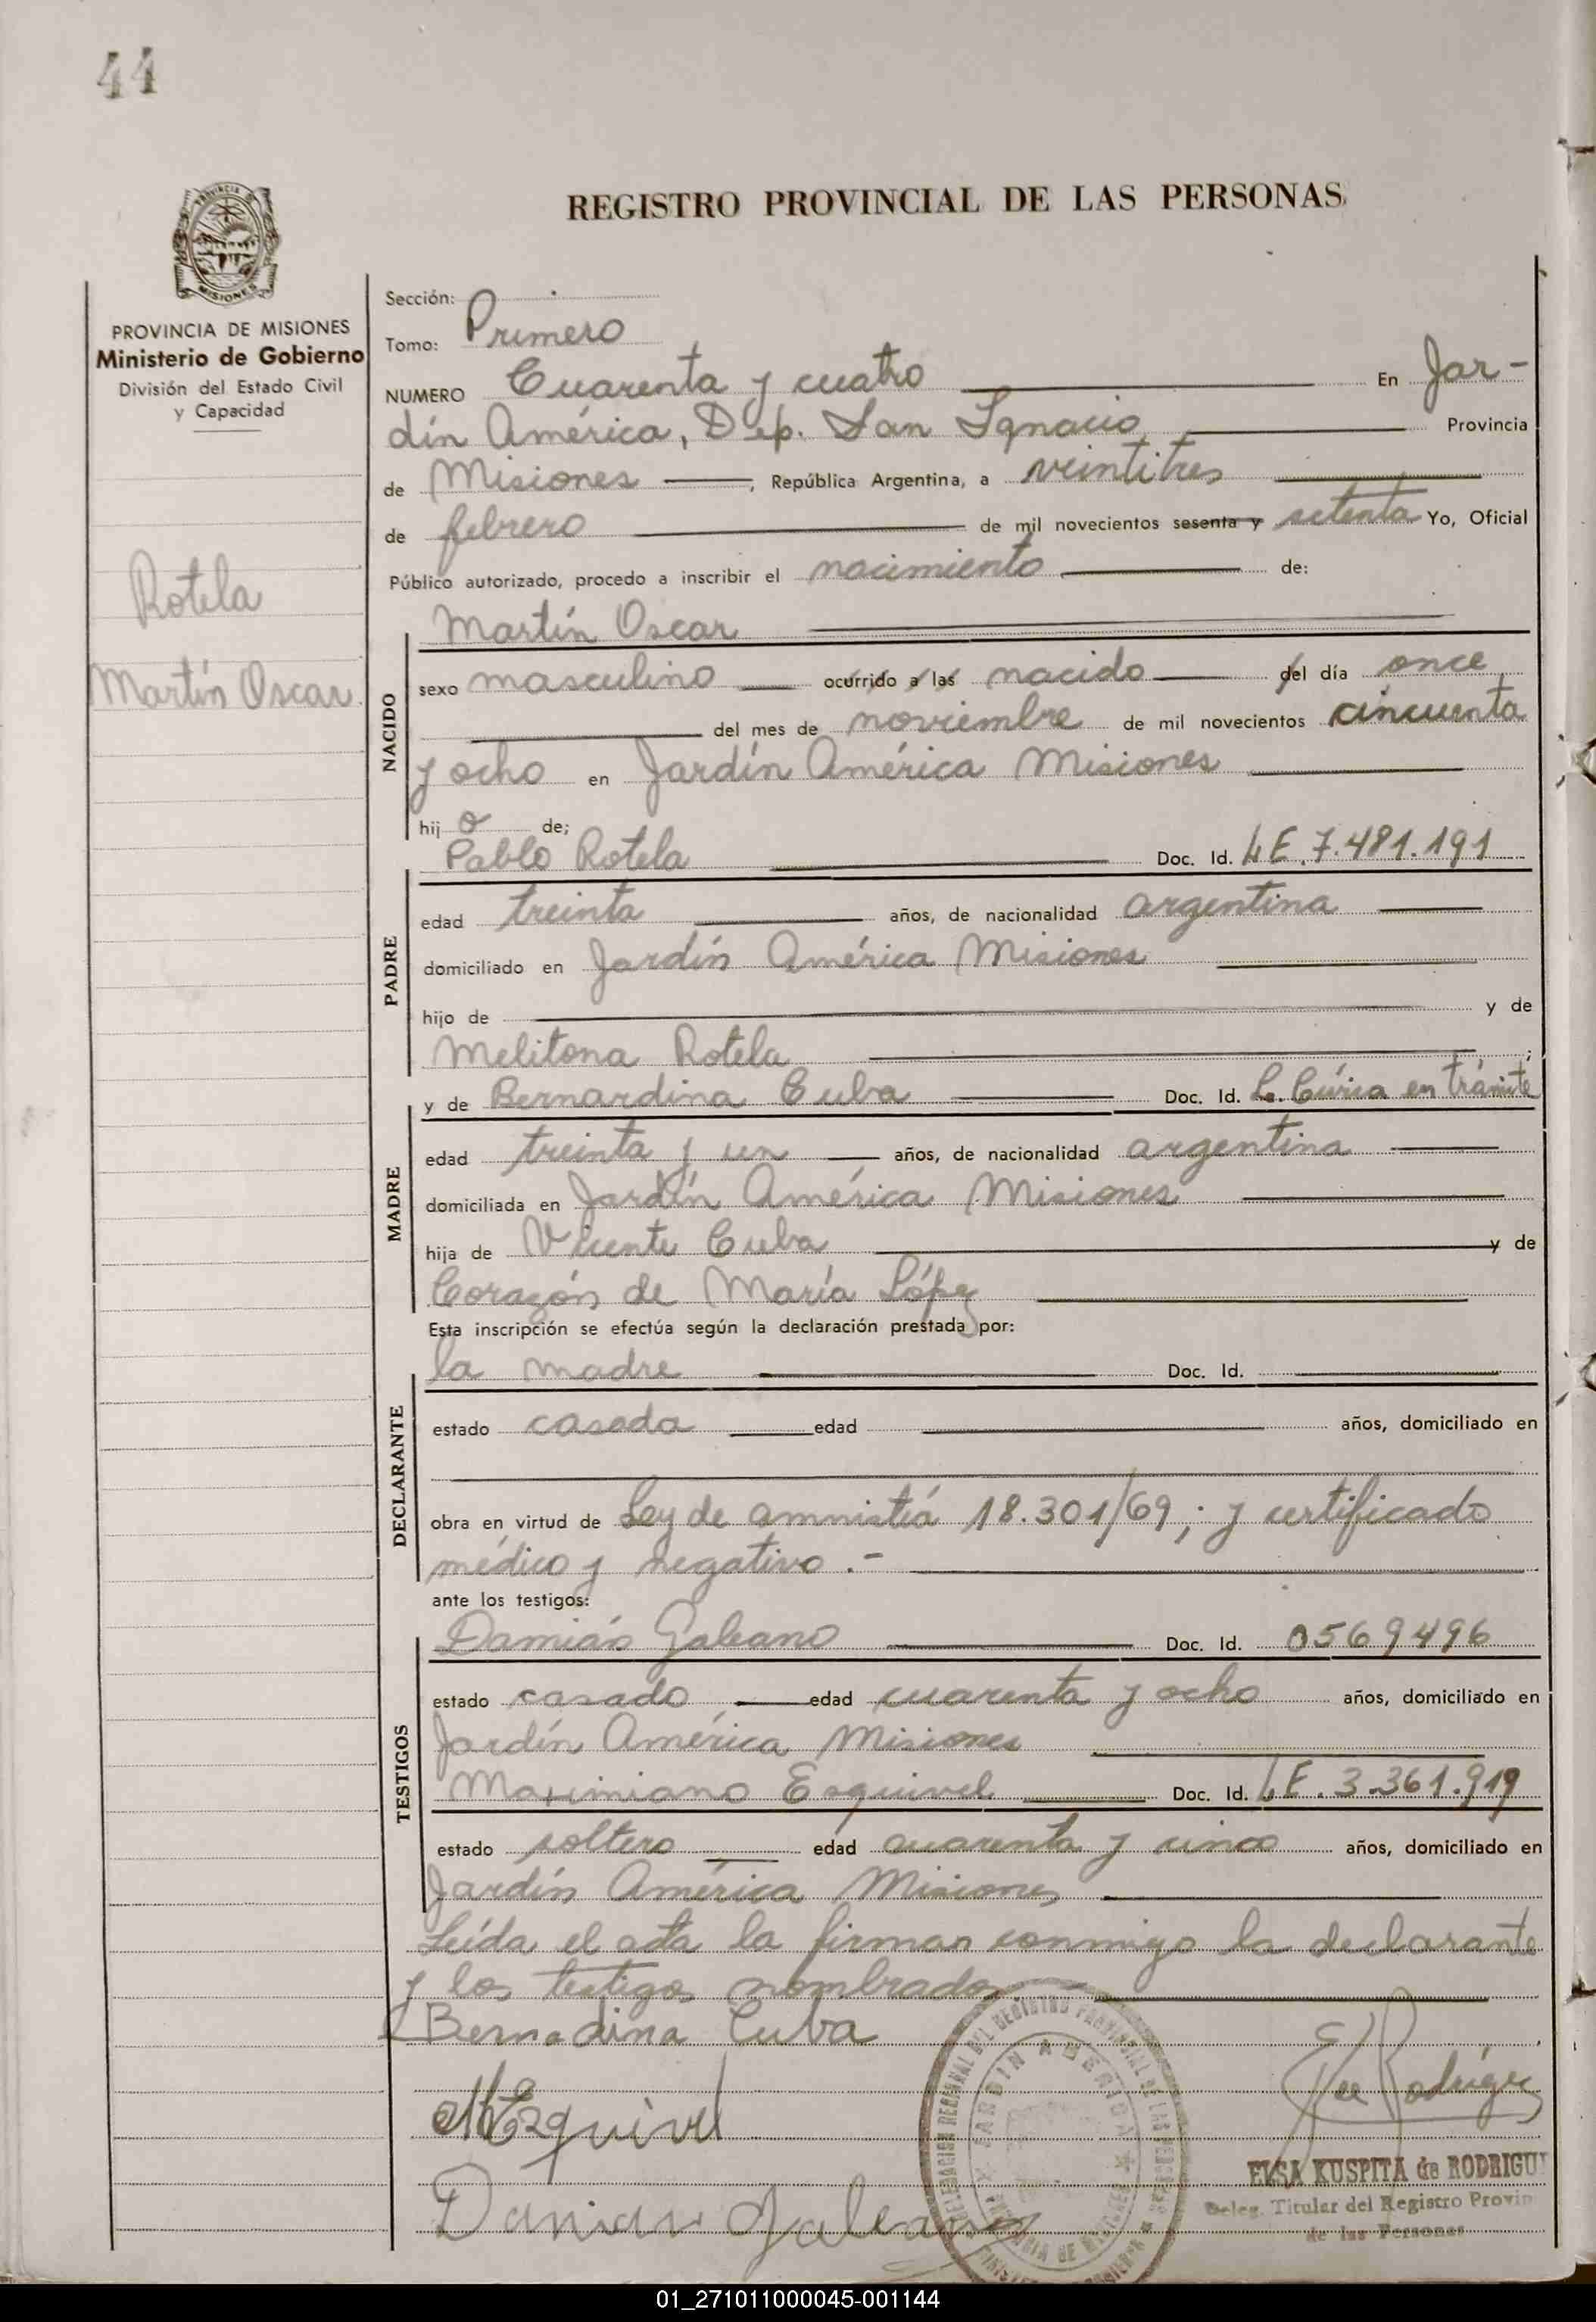 44
REGISTRO PROVINCIAL DE LAS PERSONAS
PROVINCIA DE MISIONES
Ministerio de Gobierno
División del Estado Civil
y Capacidad
Rotela
Martín Oscar
Sección:
Tomo: Primero
NUMERO Cuarenta y cuatro En Jar-
dín América, Dep. San Ignacio Provincia
de Misiones, República Argentina, a veintitres
de febrero de mil novecientos sesenta y setenta Yo, Oficial
Público autorizado, procedo a inscribir el nacimiento de:
Martín Oscar
NACIDO
sexo masculino ocurrido a las nacido del día once
del mes de noviembre de mil novecientos cincuenta
y ocho en Jardín América Misiones
hijo de;
Pablo Rotela Doc. Id. LE. 7.481.191
PADRE
edad treinta años, de nacionalidad argentina
domiciliado en Jardín América Misiones
hijo de y de
Melitona Rotela;
y de Bernardina Cuba Doc. Id. L. Cívica en trámite
MADRE
edad treinta y un años, de nacionalidad argentina
domiciliada en Jardín América Misiones
hija de Vicente Cuba y de
Corazón de María López
Esta inscripción se efectúa según la declaración prestada por:
la madre Doc. Id.
DECLARANTE
estado casada edad años, domiciliado en
obra en virtud de Ley de amnistía 18.301/69; y certificado
médico y negativo.-
ante los testigos:
Damián Galeano Doc. Id. 0569496
TESTIGOS
estado casado edad cuarenta y ocho años, domiciliado en
Jardín América Misiones
Maximiano Esquivel Doc. Id. LE. 3.361.919
estado soltero edad cuarenta y cinco años, domiciliado en
Jardín América Misiones
Leída el acta la firman conmigo la declarante
y los testigos nombrados
Bernadina Cuba
MEzquivel
Damian Galeano
Rodríguez
ELSA KUSPITA de RODRIGU
Deleg. Titular del Registro Provin
de las Personas
DELEGACION REGIONAL DEL REGISTRO PROVINCIAL DE LAS PERSONAS
JARDIN AMERICA
01_271011000045-001144